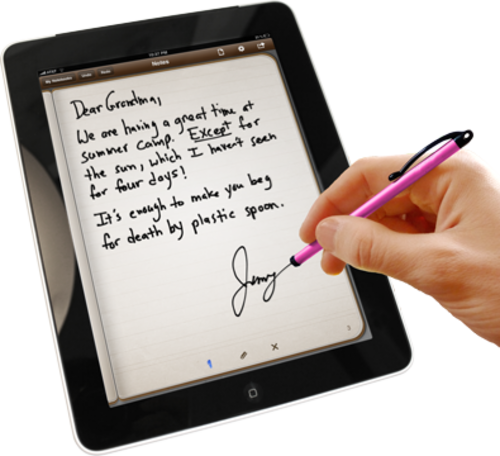 Notes
My Notebooks
Dear Grandma,
We are having a great time at
summer camp. Except for
the sun, which I haven't seen
for four days!
It's enough to make you beg
for death by plastic spoon.
Jenny